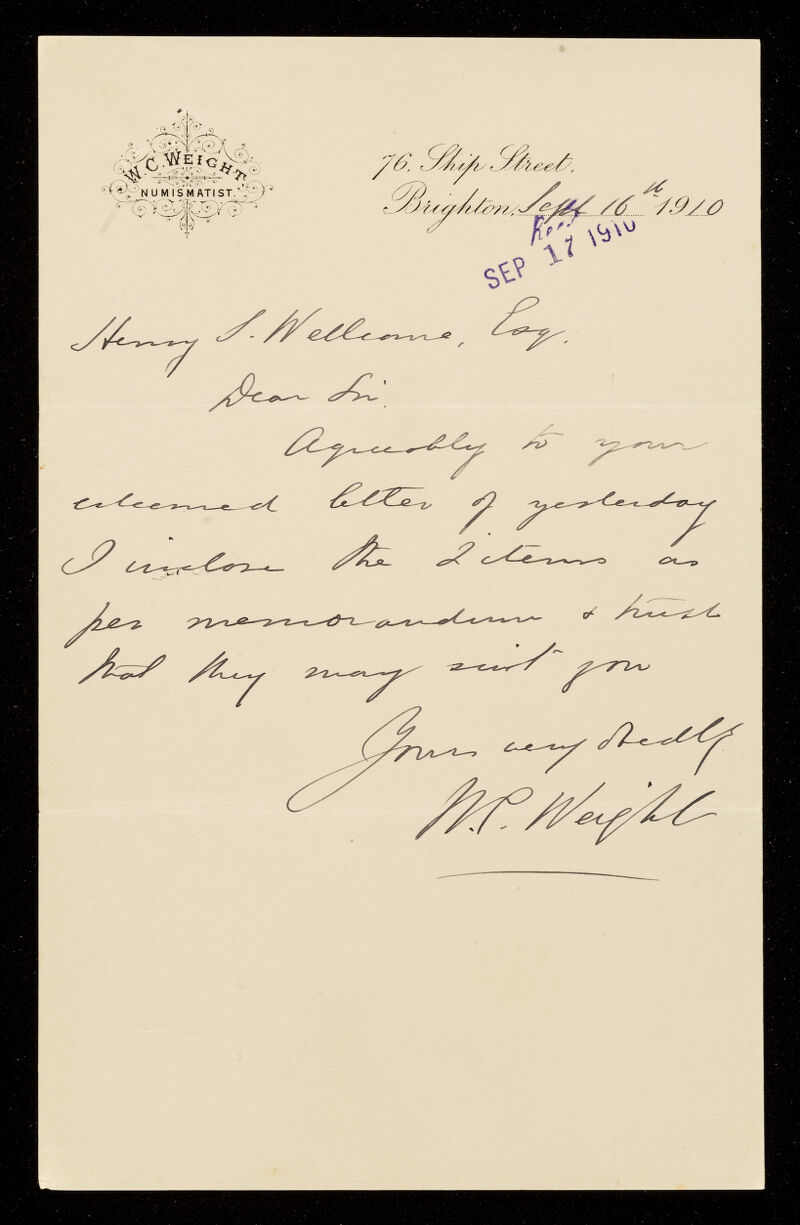 W. C. WEIGHT,
NUMISMATIST.
76. Ship Street.
Brighton, Sept 16th 1910
Recd
SEP 17 1910
Henry S. Wellcome, Esq.
Dear Sir.
Agreeably to your
esteemed letter of yesterday
I inclose the 2 items as
per memorandum & trust
that they may suit you
Yours very obedly
W. C. Weight